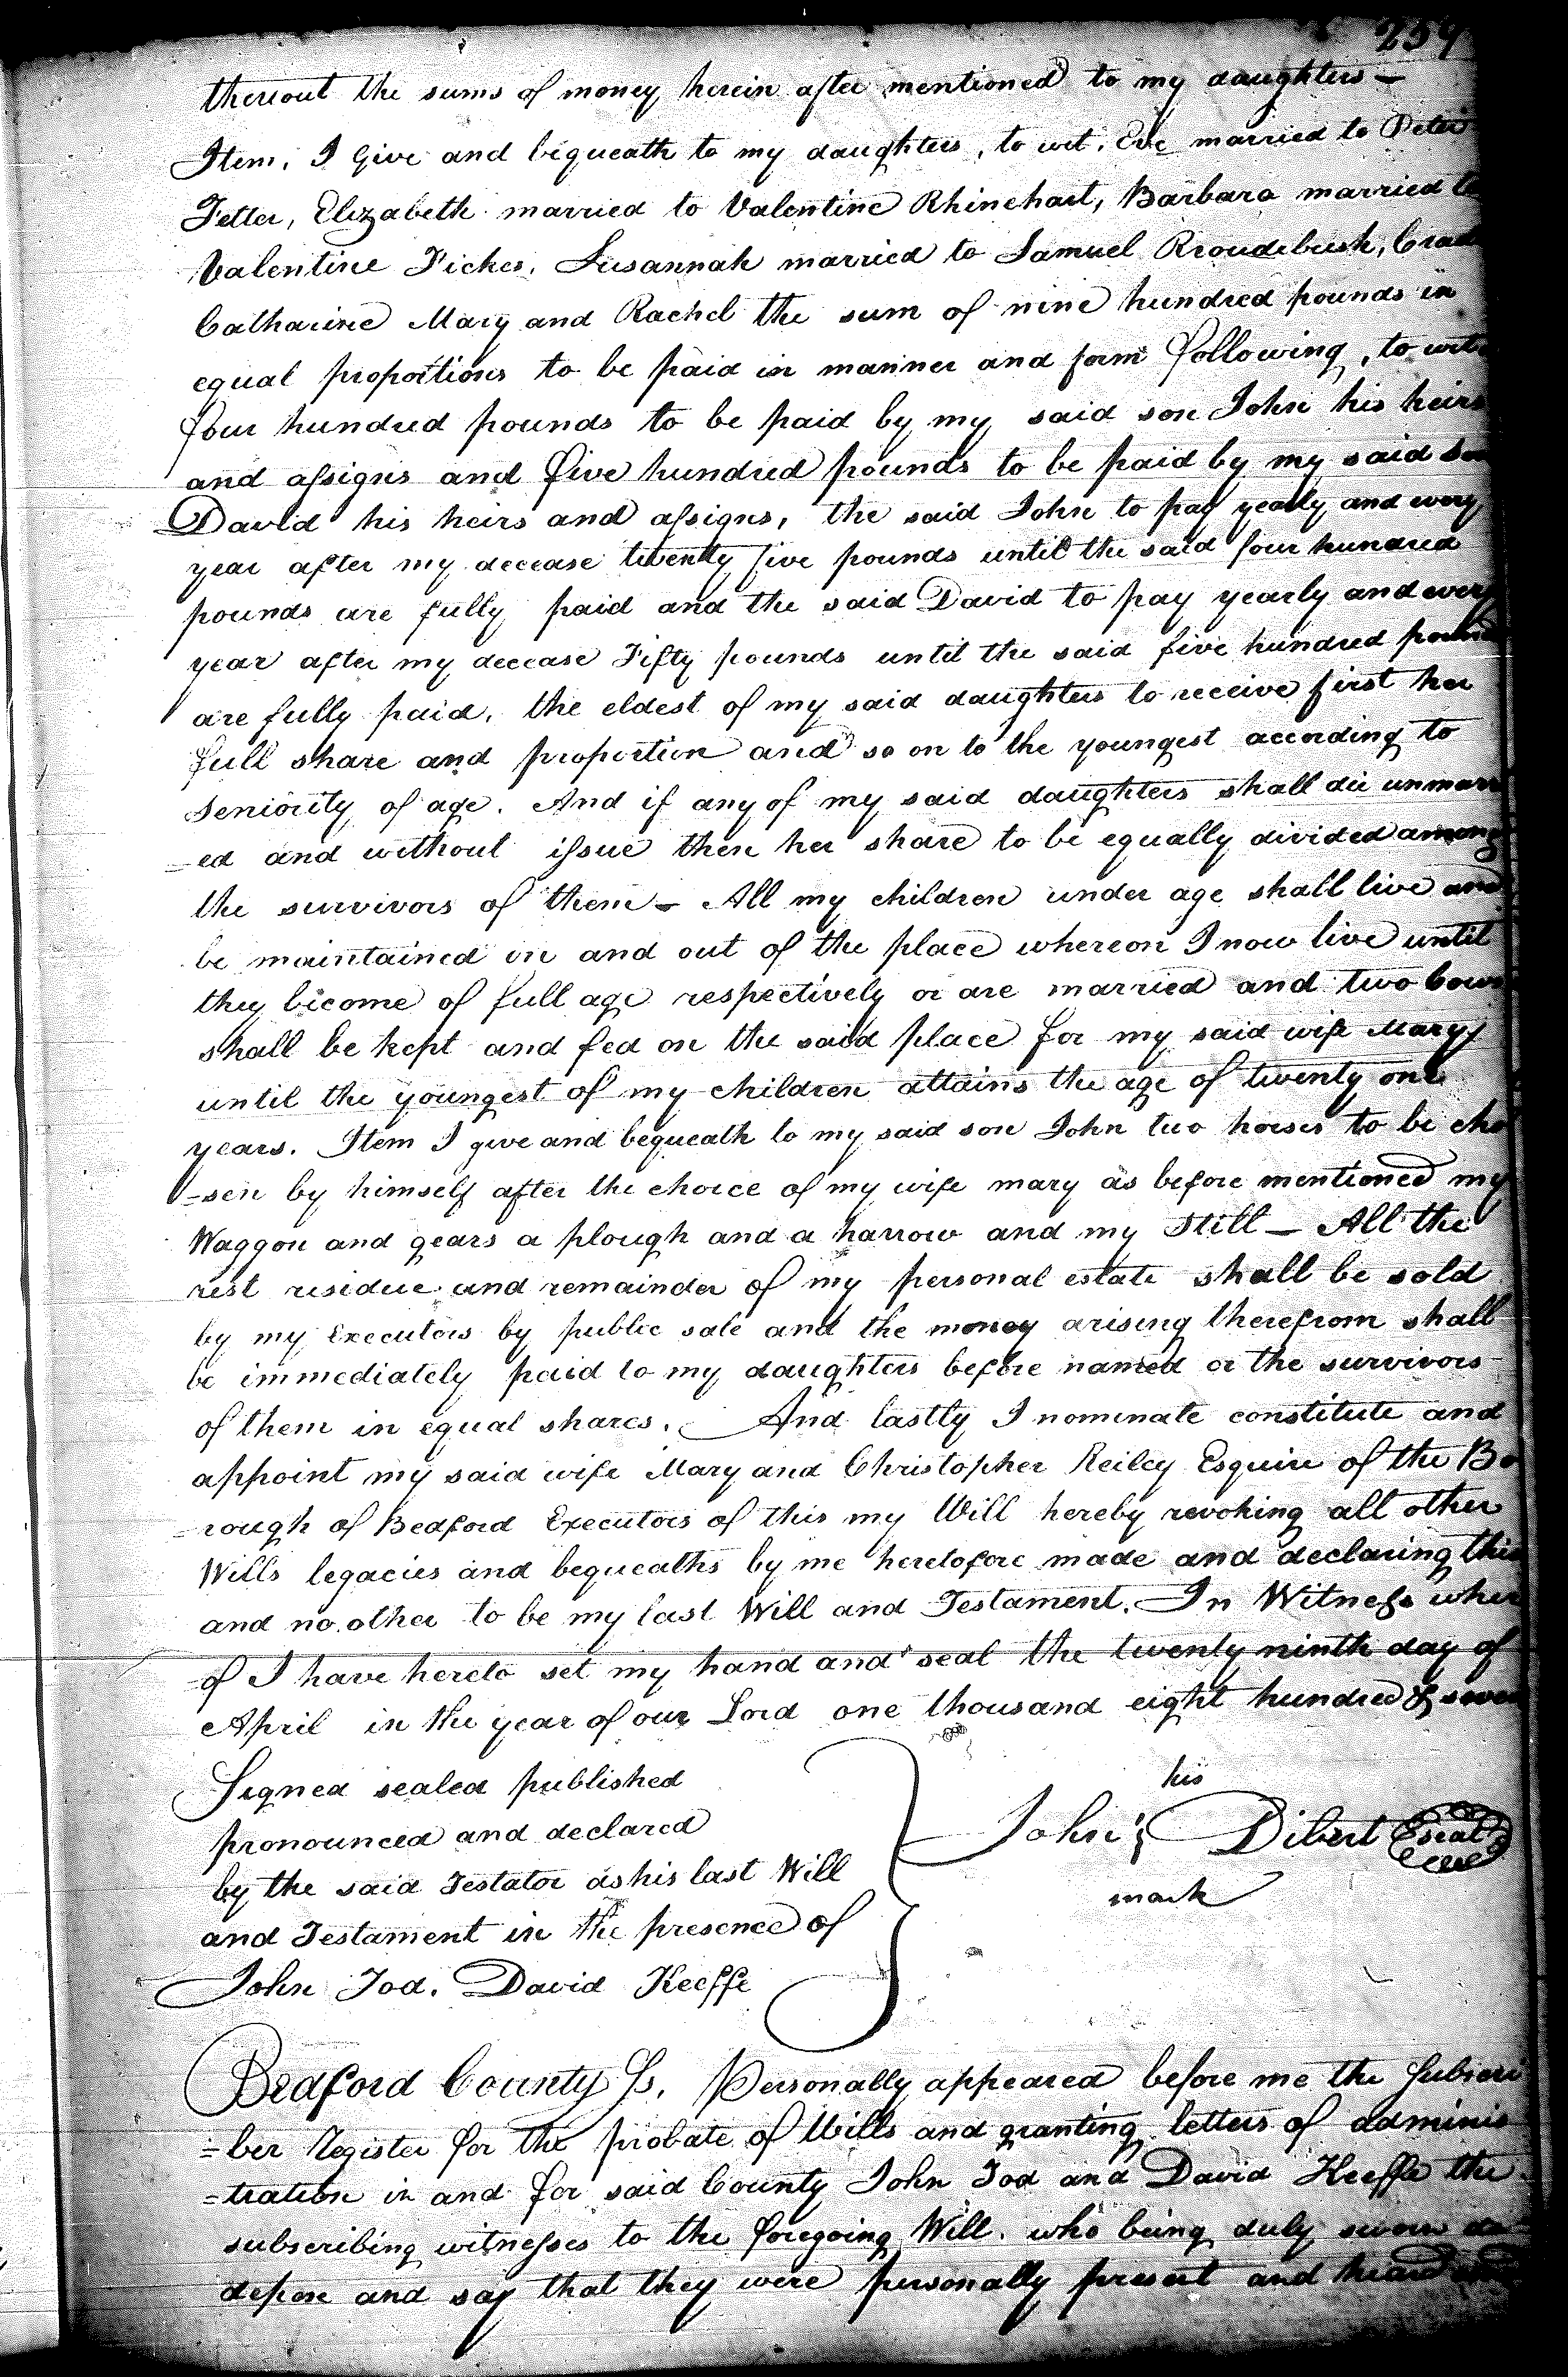 259
thereout the sums of money herein after mentioned to my daughters —
Item, I Give and bequeath to my daughters, to wit, Eve married to Peter
Fetter, Elizabeth married to Valentine Rhinehart, Barbara married to
Valentine Fickes, Susannah married to Samuel Rroudebush,
Catharine Mary and Rachel the sum of nine hundred pounds in
equal proportions to be paid in manner and form following, to wit
four hundred pounds to be paid by my said son John his heirs
and assigns and five hundred pounds to be paid by my said son
David his heirs and assigns, the said John to pay yearly and every
year after my decease twenty five pounds until the said four hundred
pounds are fully paid and the said David to pay yearly and every
year after my decease Fifty pounds until the said five hundred pounds
are fully paid, the eldest of my said daughters to receive first her
full share and proportion and so on to the youngest according to
seniority of age. And if any of my said daughters shall die unmarri
=ed and without issue then her share to be equally divided among
the survivors of them — All my children under age shall live and
be maintained in and out of the place whereon I now live until
they become of full age respectively or are married and two Cows
shall be kept and fed on the said place for my said wife Mary
until the youngest of my children attains the age of twenty one
years. Item I give and bequeath to my said son John two horses to be cho
=sen by himself after the choice of my wife mary as before mentioned my
Waggon and gears a plough and a harrow and my Still — All the
rest residue and remainder of my personal estate shall be sold
by my Executors by public sale and the money arising therefrom shall
be immediately paid to my daughters before named or the survivors
of them in equal shares. And lastly I nominate constitute and
appoint my said wife Mary and Christopher Reiley Esquire of the Bo
=rough of Bedford Executors of this my Will hereby revoking all other
Wills legacies and bequeaths by me heretofore made and declaring this
and no other to be my last Will and Testament. In Witness where
=of I have hereto set my hand and seal the twenty ninth day of
April in the year of our Lord one thousand eight hundred & seven
Signed sealed published
pronounced and declared
by the said Testator as his last Will
and Testament in the presence of
John Tod. David Keeffe
his
John Dibert Seal
mark
Bedford County Ss. Personally appeared before me the Subscri
=ber Register for the probate of Wills and granting letters of adminis
=tration in and for said County John Tod and David Keeffe the
subscribing witnesses to the foregoing Will. who being duly sworn do
depose and say that they were personally present and heard